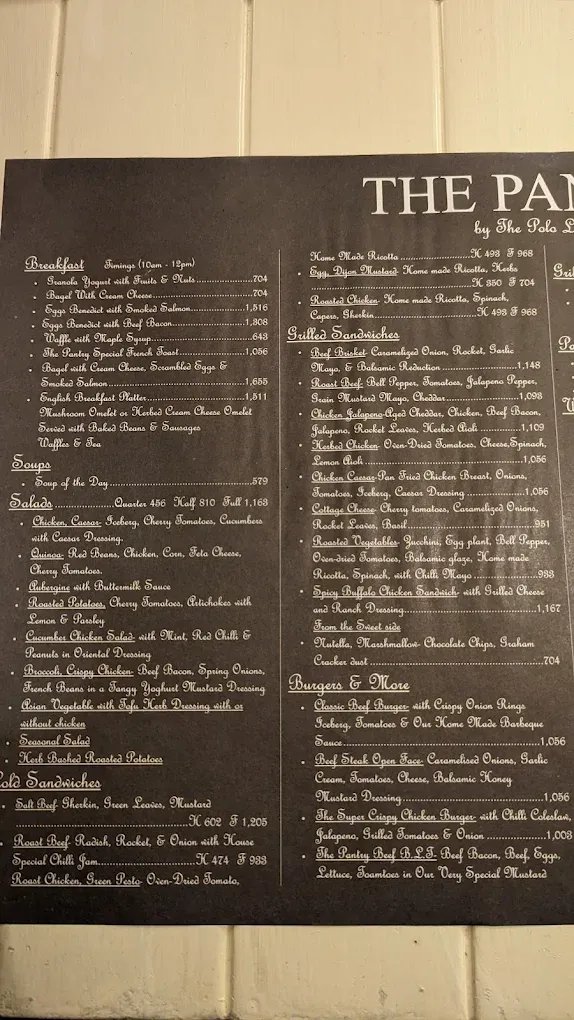 THE PAN
by The Polo L
Breakfast Timings (10am - 12pm)
Granola Yogurt with Fruits & Nuts....................704
Bagel With Cream Cheese....................704
Eggs Benedict with Smoked Salmon....................1,516
Eggs Benedict with Beef Bacon....................1,308
Waffle with Maple Syrup....................643
The Pantry Special French Toast....................1,056
Bagel with Cream Cheese, Scrambled Eggs &
Smoked Salmon....................1,655
English Breakfast Platter....................1,511
Mushroom Omelet or Herbed Cream Cheese Omelet
Served with Baked Beans & Sausages
Waffles & Tea
Soups
Soup of the Day....................579
Salads....................Quarter 456 Half 810 Full 1,163
Chicken, Caesar- Iceberg, Cherry Tomatoes, Cucumbers
with Caesar Dressing.
Quinoa- Red Beans, Chicken, Corn, Feta Cheese,
Cherry Tomatoes.
Aubergine with Buttermilk Sauce
Roasted Potatoes, Cherry Tomatoes, Artichokes with
Lemon & Parsley
Cucumber Chicken Salad- with Mint, Red Chilli &
Peanuts in Oriental Dressing
Broccoli, Crispy Chicken- Beef Bacon, Spring Onions,
French Beans in a Tangy Yoghurt Mustard Dressing
Asian Vegetable with Tofu Herb Dressing with or
without chicken
Seasonal Salad
Herb Bashed Roasted Potatoes
Cold Sandwiches
Salt Beef- Gherkin, Green Leaves, Mustard
....................H 602 F 1,205
Roast Beef- Radish, Rocket, & Onion with House
Special Chilli Jam....................H 474 F 983
Roast Chicken, Green Pesto- Oven-Dried Tomato,
Home Made Ricotta....................H 493 F 968
Egg, Dijon Mustard- Home made Ricotta, Herbs
....................H 350 F 704
Roasted Chicken- Home made Ricotta, Spinach,
Capers, Gherkin....................H 493 F 968
Grilled Sandwiches
Beef Brisket- Caramelized Onion, Rocket, Garlic
Mayo, & Balsamic Reduction....................1,148
Roast Beef- Bell Pepper, Tomatoes, Jalapeno Pepper,
Grain Mustard Mayo, Cheddar....................1,093
Chicken Jalapeno-Aged Cheddar, Chicken, Beef Bacon,
Jalapeno, Rocket Leaves, Herbed Aioli....................1,109
Herbed Chicken- Oven-Dried Tomatoes, Cheese, Spinach,
Lemon Aioli....................1,056
Chicken Caesar-Pan Fried Chicken Breast, Onions,
Tomatoes, Iceberg, Caesar Dressing....................1,056
Cottage Cheese- Cherry tomatoes, Caramelized Onions,
Rocket Leaves, Basil....................951
Roasted Vegetables- Zucchini, Egg plant, Bell Pepper,
Oven-dried Tomatoes, Balsamic glaze, Home made
Ricotta, Spinach, with Chilli Mayo....................933
Spicy Buffalo Chicken Sandwich- with Grilled Cheese
and Ranch Dressing....................1,167
From the Sweet side
Nutella, Marshmallow- Chocolate Chips, Graham
Cracker dust....................704
Burgers & More
Classic Beef Burger- with Crispy Onion Rings
Iceberg, Tomatoes & Our Home Made Barbeque
Sauce....................1,056
Beef Steak Open Face- Caramelised Onions, Garlic
Cream, Tomatoes, Cheese, Balsamic Honey
Mustard Dressing....................1,056
The Super Crispy Chicken Burger- with Chilli Coleslaw,
Jalapeno, Grilled Tomatoes & Onion....................1,003
The Pantry Beef B.L.T- Beef Bacon, Beef, Eggs,
Lettuce, Toamtoes in Our Very Special Mustard
Gri
Pa